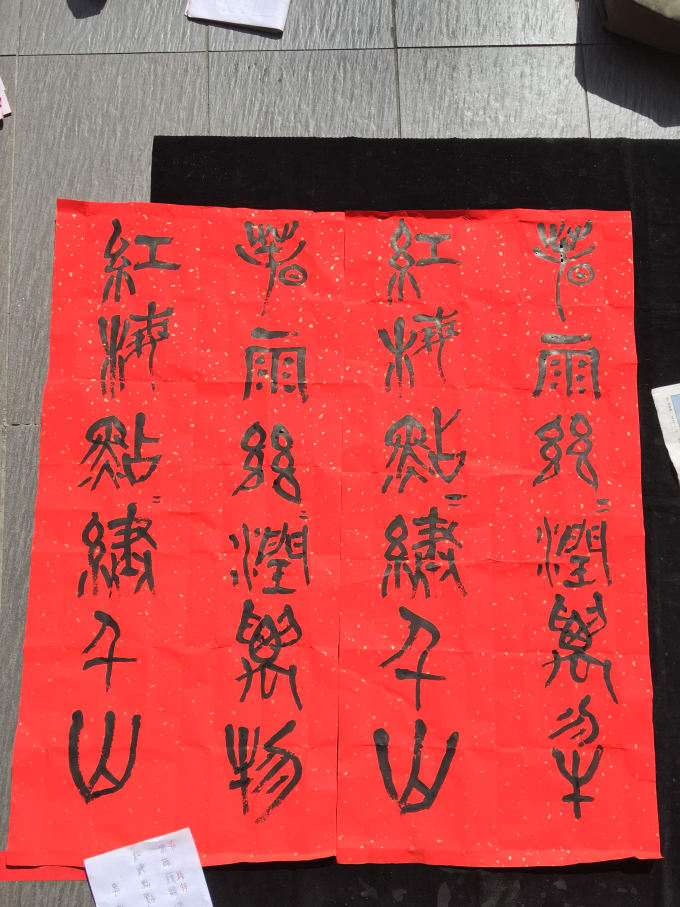 春雨絲〻潤萬物
紅梅點〻繡千山
春雨絲〻潤萬物
紅梅點〻繡千山